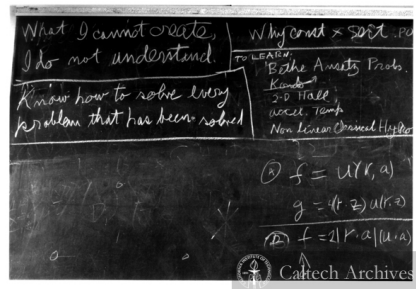 What I cannot create,
I do not understand.
Know how to solve every
problem that has been solved
Why const × sort . PO
TO LEARN:
Bethe Ansatz Probs.
Kondo
2-D Hall
accel. Temp
Non Linear Classical Hydro
f = u(r, a)
g = u(r. z)
f = 2|r.a|(u.a)
Caltech Archives